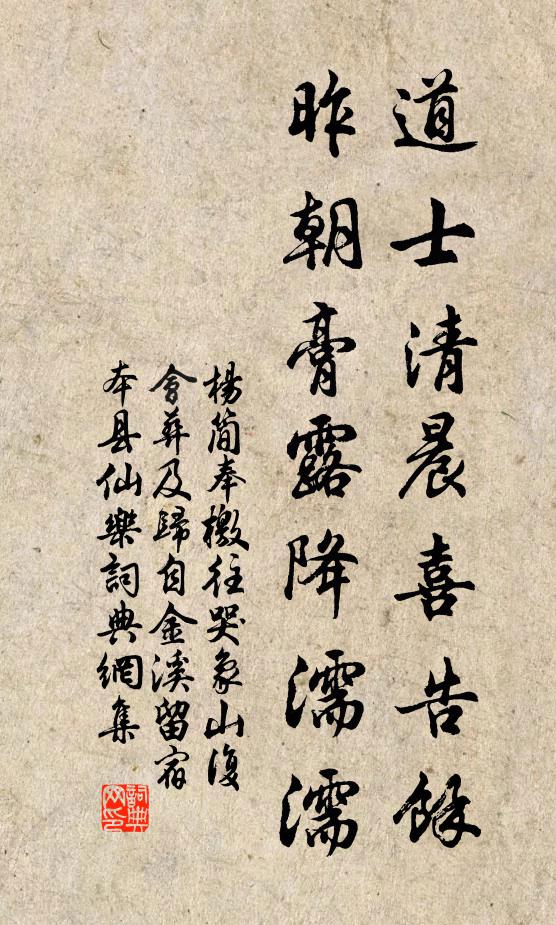 道士清晨喜告餘
昨朝膏露降濡濡
楊簡奉檄往哭象山復
會葬及歸自金溪留宿
本县仙樂詞典網集
詞典
网印